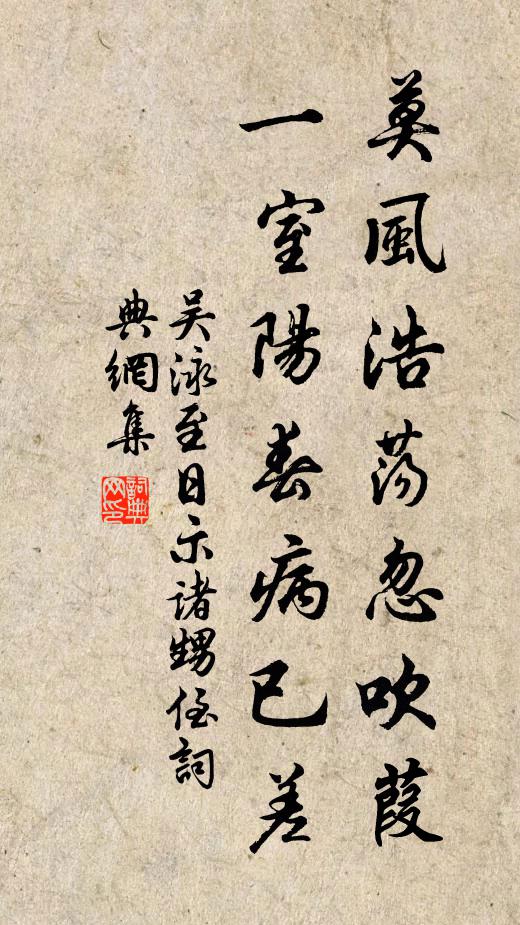 莫風浩蕩忽吹葭
一室陽春病已差
吴泳至日示諸甥侄詞
典網集
詞典网印